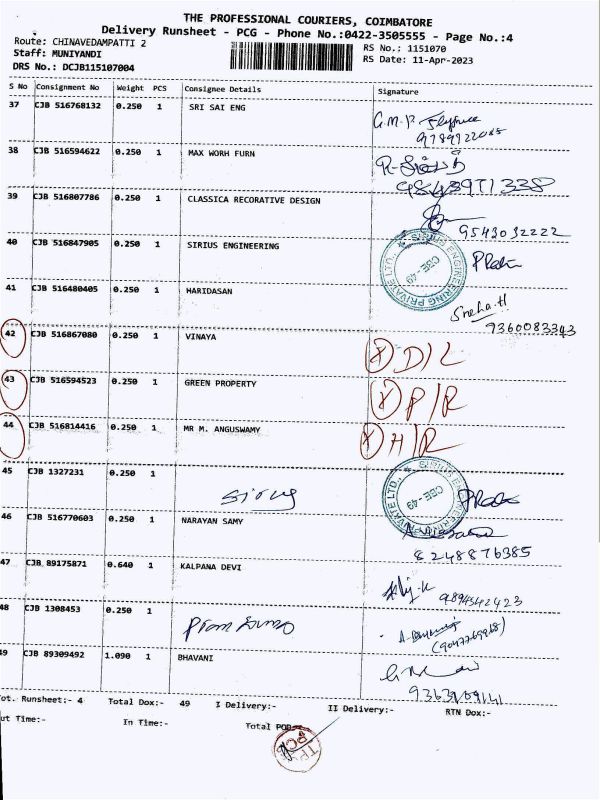 THE PROFESSIONAL COURIERS, COIMBATORE
Delivery Runsheet - PCG - Phone No.:0422-3505555 - Page No.:4
Route: CHINAVEDAMPATTI 2
Staff: MUNIYANDI
DRS No.: DCJB115107004
RS No.: 1151070
RS Date: 11-Apr-2023
S No Consignment No Weight PCS Consignee Details Signature
37 CJB 516768132 0.250 1 SRI SAI ENG
38 CJB 516594622 0.250 1 MAX WORH FURN
39 CJB 516807786 0.250 1 CLASSICA RECORATIVE DESIGN
9543032222
40 CJB 516847905 0.250 1 SIRIUS ENGINEERING
SIRIUS ENGINEERING PRIVATE LTD., CBE-49
41 CJB 516480405 0.250 1 HARIDASAN
Sneha.H
9360083343
42 CJB 516867080 0.250 1 VINAYA
X D/L
43 CJB 516594523 0.250 1 GREEN PROPERTY
X P/R
44 CJB 516814416 0.250 1 MR M. ANGUSWAMY
X H/R
45 CJB 1327231 0.250 1
SIRIUS ENGINEERING PRIVATE LTD., CBE-49
46 CJB 516770603 0.250 1 NARAYAN SAMY
8248876385
47 CJB 89175871 0.640 1 KALPANA DEVI
9894542423
48 CJB 1308453 0.250 1
49 CJB 89309492 1.090 1 BHAVANI
Tot. Runsheet:- 4 Total Dox:- 49 I Delivery:- II Delivery:- RTN Dox:-
Out Time:- In Time:- Total POD